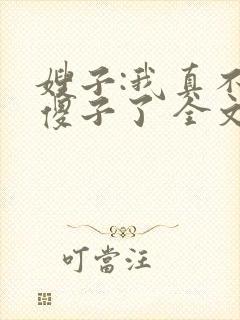 嫂子:我真不
傻子了 全文
叮當汪